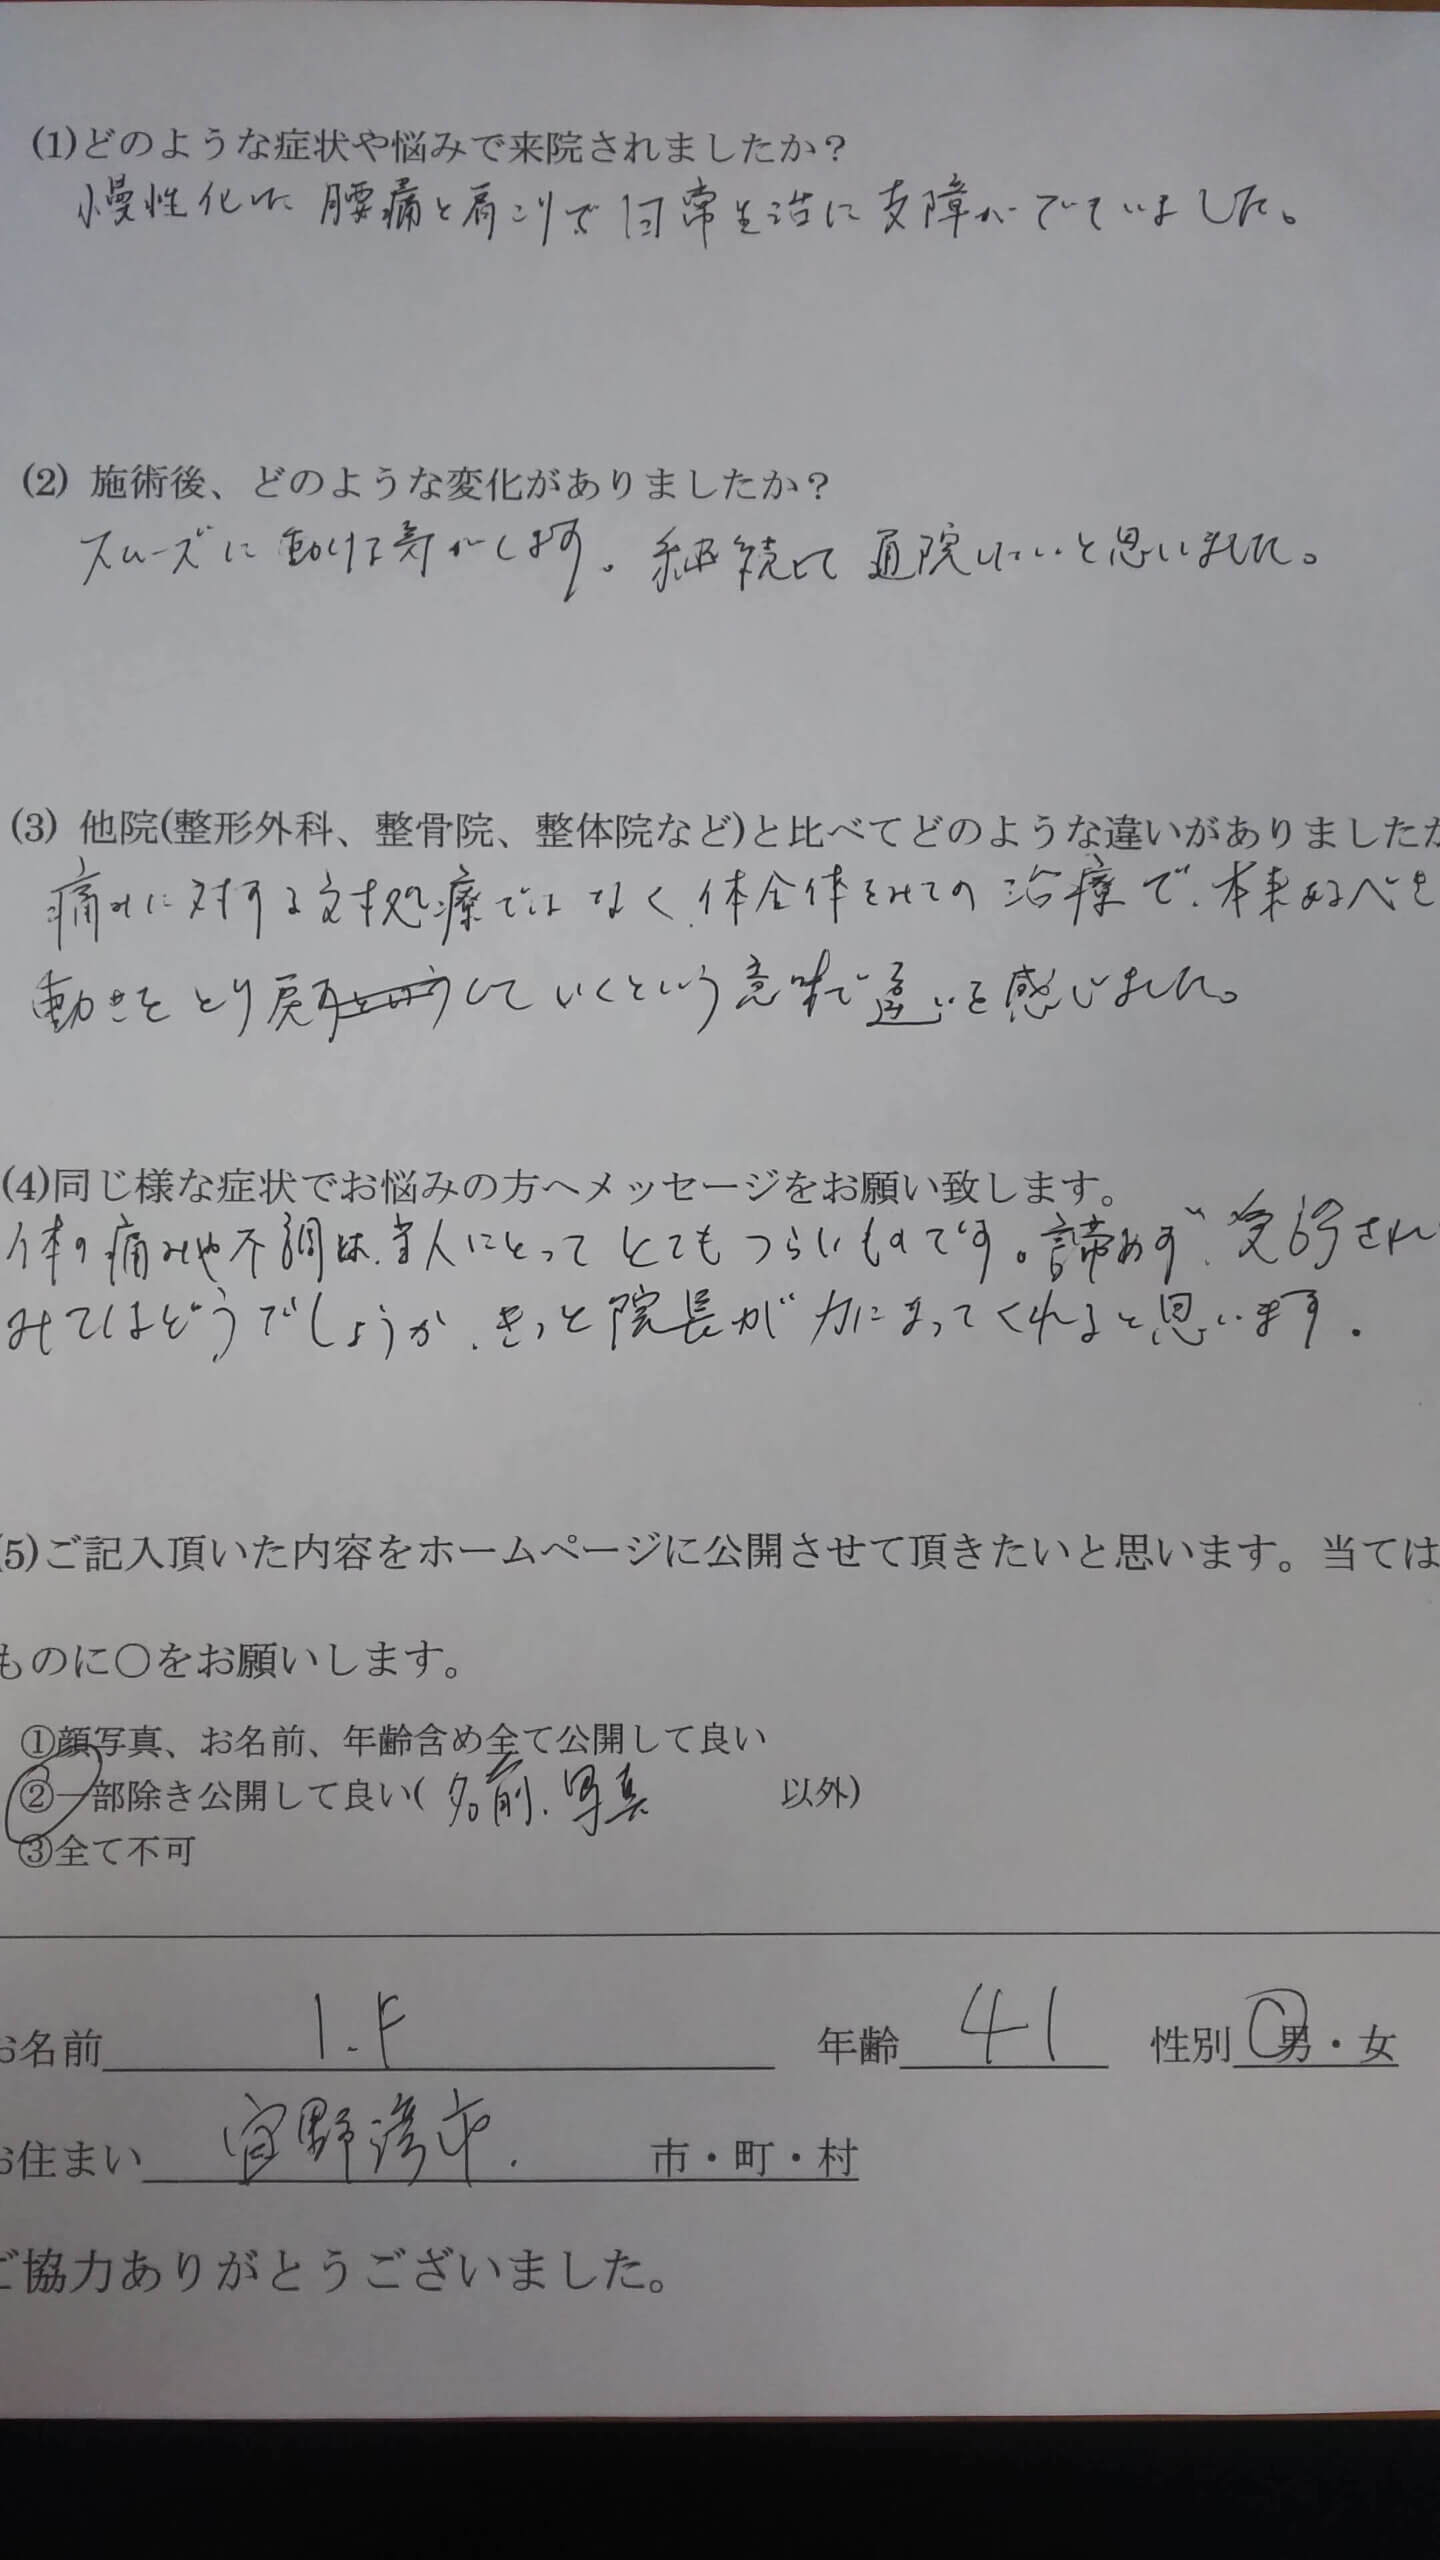 (1)どのような症状や悩みで来院されましたか?
慢性化した腰痛と肩こりで日常生活に支障がでていました。
(2) 施術後、どのような変化がありましたか?
スムーズに動ける気がします。継続して通院したいと思いました。
(3) 他院(整形外科、整骨院、整体院など)と比べてどのような違いがありましたか
痛みに対する対処療ではなく、体全体をみての治療で、本来あるべき
動きをとり戻していくという意味で違いを感じました。
(4)同じ様な症状でお悩みの方へメッセージをお願い致します。
体の痛みや不調は、当人にとってとてもつらいものです。諦めず、受診されて
みてはどうでしょうか、きっと院長が力になってくれると思います.
(5)ご記入頂いた内容をホームページに公開させて頂きたいと思います。当ては
ものに〇をお願いします。
①顔写真、お名前、年齢含め全て公開して良い
②一部除き公開して良い(名前、写真 以外)
③全て不可
お名前 I.F 年齢 41 性別 男・女
お住まい 宜野湾市. 市・町・村
ご協力ありがとうございました。